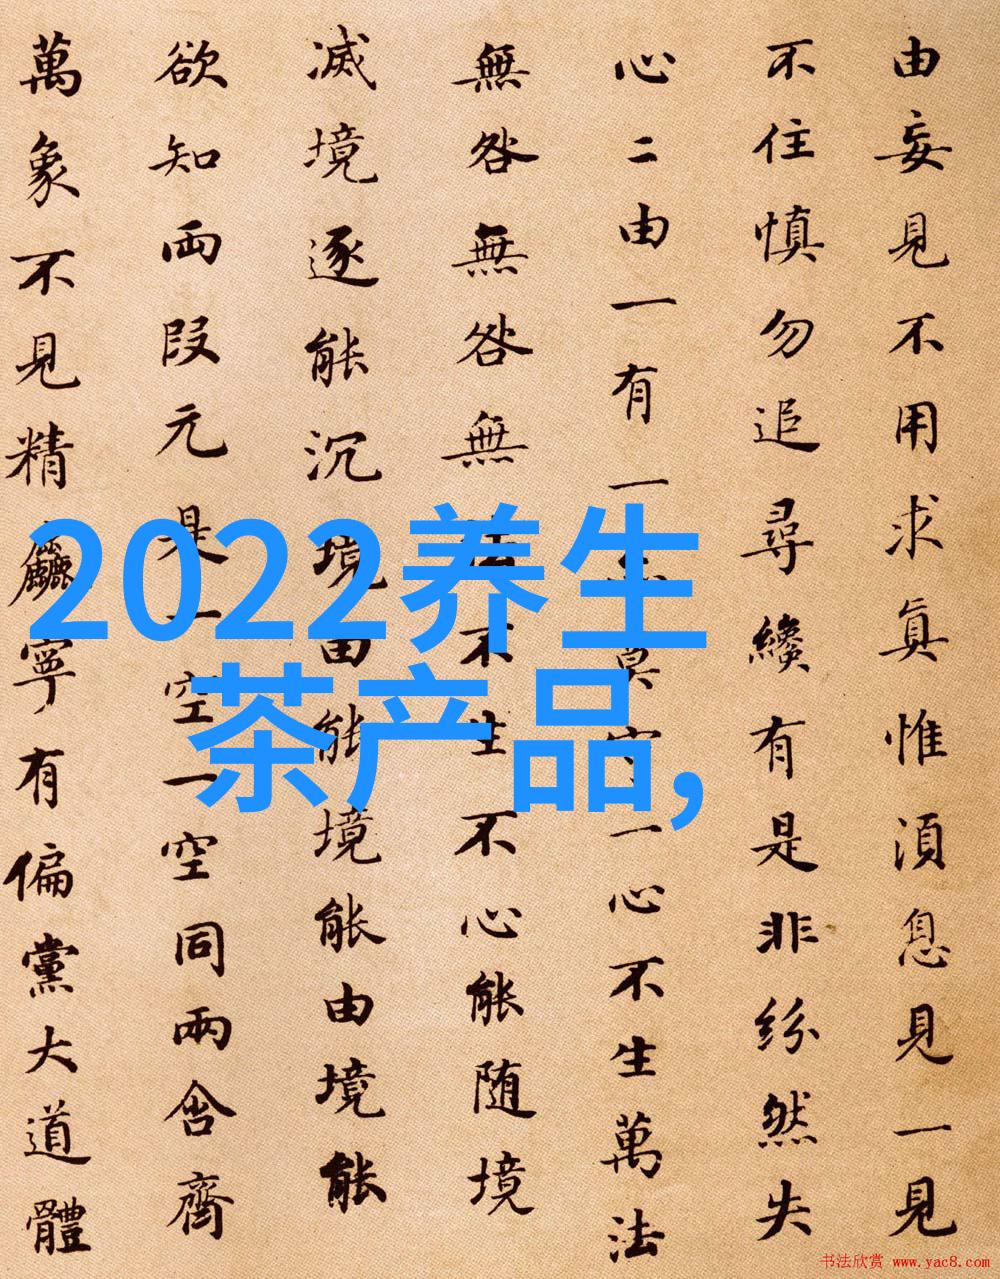 由妄見不用求真惟須息見一見
不住慎勿追尋纔有是非紛然失
心二由一有一莫守一心不生萬法
無咎無咎無不生不心能随境
滅境逐能沉境由能境能由境能
欲知両段元是一空一空同兩含齊
萬象不見精麤寧有偏黨大道體
2022养生
茶产品,
书法欣赏 www.yac8.com